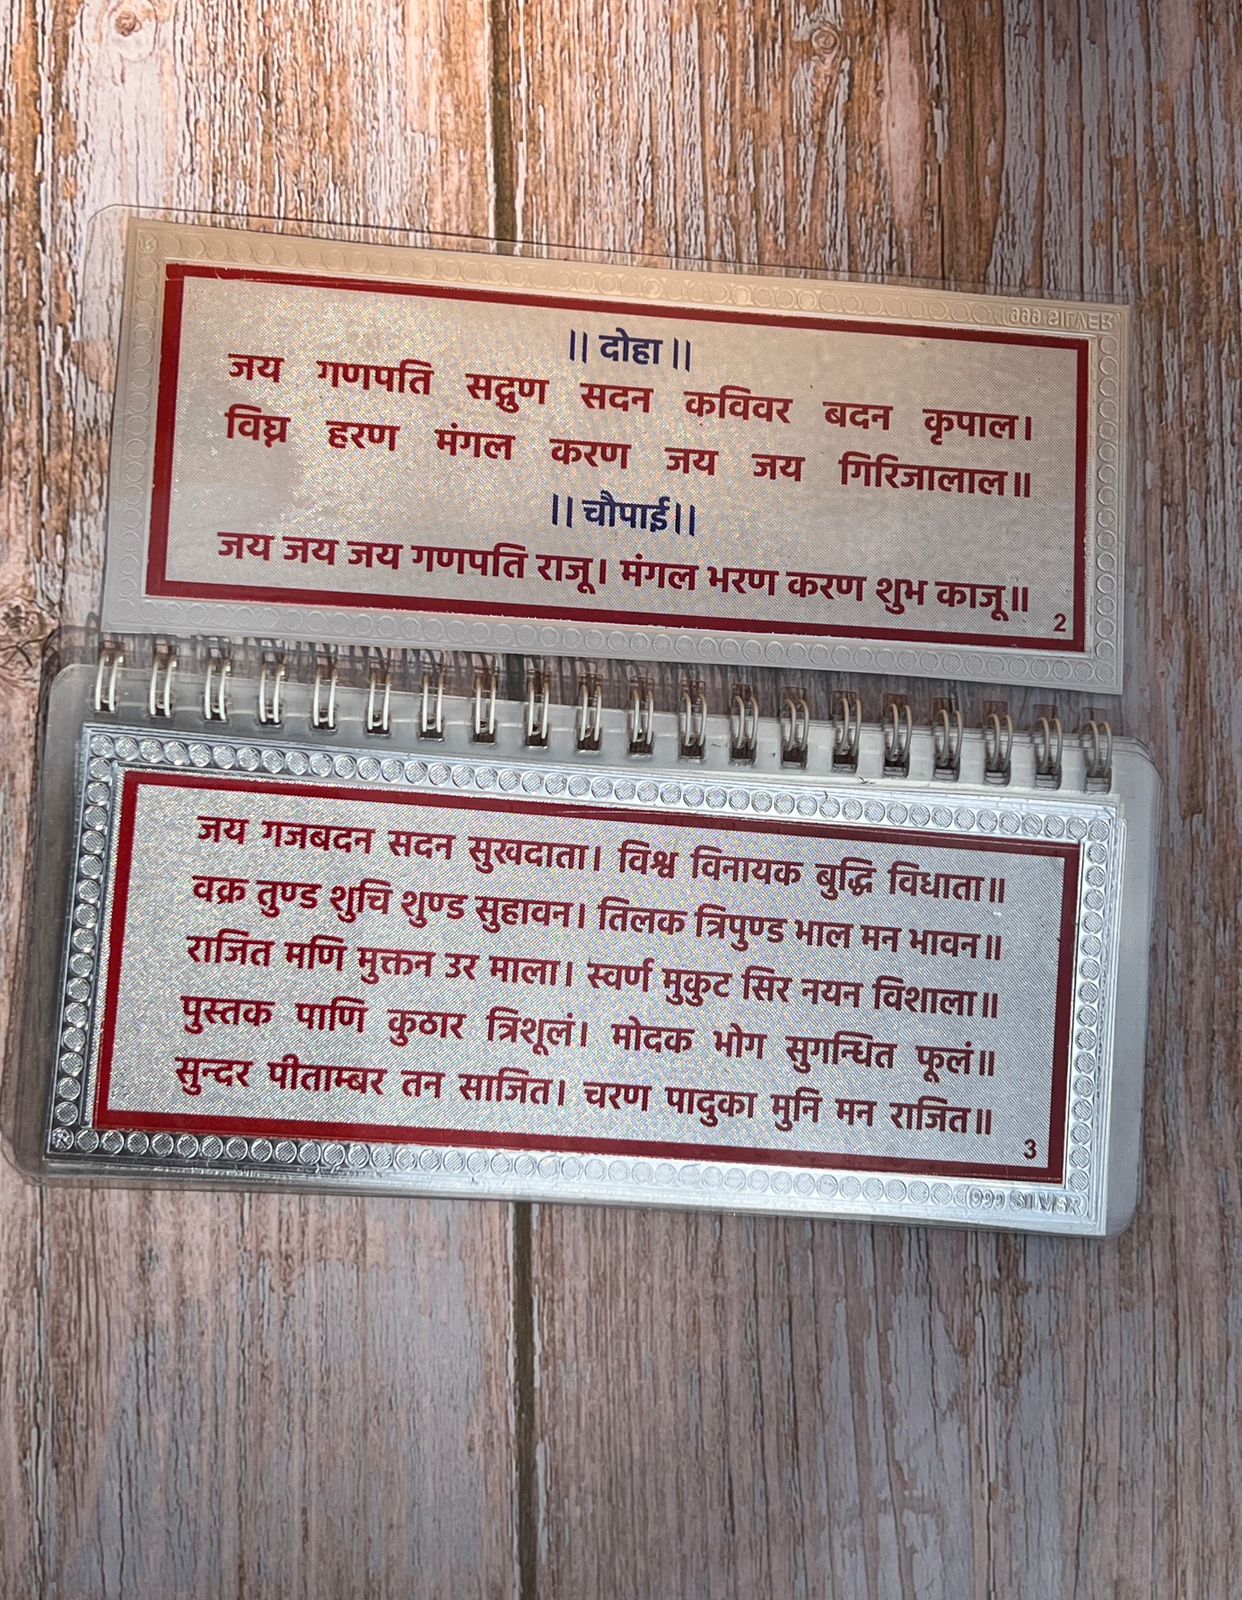 999 SILVER
|| दोहा ||
जय गणपति सद्गुण सदन कविवर बदन कृपाल।
विघ्न हरण मंगल करण जय जय गिरिजालाल॥
|| चौपाई||
जय जय जय गणपति राजू। मंगल भरण करण शुभ काजू॥
2
जय गजबदन सदन सुखदाता। विश्व विनायक बुद्धि विधाता॥
वक्र तुण्ड शुचि शुण्ड सुहावन। तिलक त्रिपुण्ड भाल मन भावन॥
राजित मणि मुक्तन उर माला। स्वर्ण मुकुट सिर नयन विशाला॥
पुस्तक पाणि कुठार त्रिशूलं। मोदक भोग सुगन्धित फूलं॥
सुन्दर पीताम्बर तन साजित। चरण पादुका मुनि मन राजित॥
3
999 SILVER